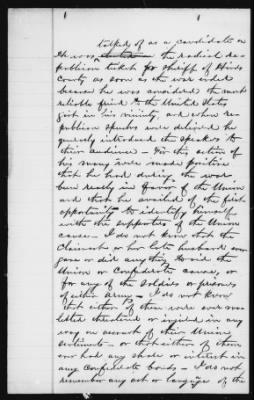 talked of as a candidate on
He was the radical Re-
publican ticket for sheriff of Hinds
County as soon as the war ended
because he was considered the most
reliable friend to the United States
Govt in his vicinity, and when re-
publican speeches were delivered he
usually introduced the speakers to
their audience. For this action of
his many were made positive
that he had during the war
been really in favor of the Union
and that he availed of the first
opportunity to identify himself
with the supporters of the Union
cause – I do not know that the
Claimant or her late husband ever
gave or did anything to aid the
Union or Confederate cause, or
for any of the soldiers or prisoners
of either army – I do not know
that either of them were ever mo-
lested threatened or injured in any
way on account of their Union
sentiments – or that either of them
ever had any share or interest in
any Confederate bonds – I do not
remember any act or language of the